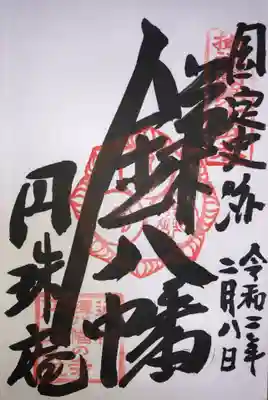 国定史跡
令和二年
二月八日
鎌八幡
円珠庵